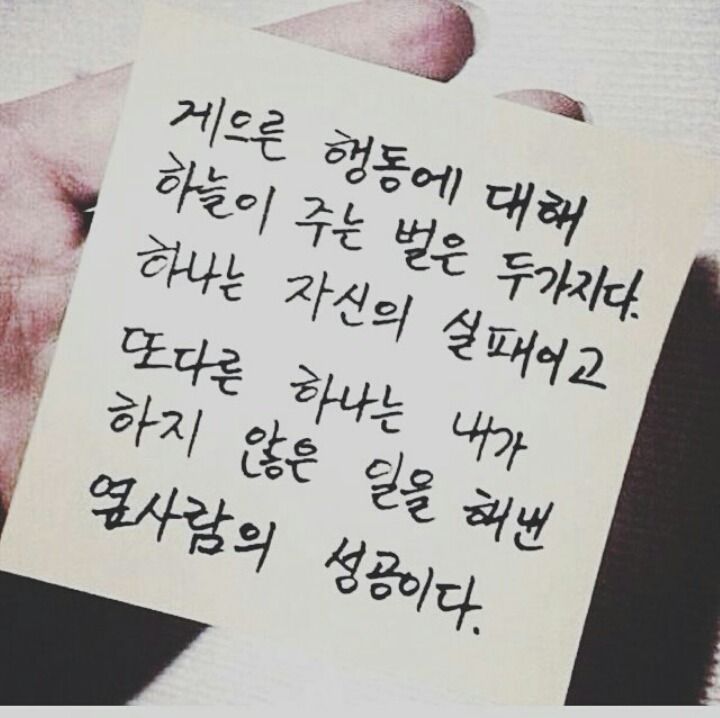 게으른 행동에 대해
하늘이 주는 벌은 두가지다.
하나는 자신의 실패이고
또다른 하나는 내가
하지 않은 일을 해낸
옆사람의 성공이다.